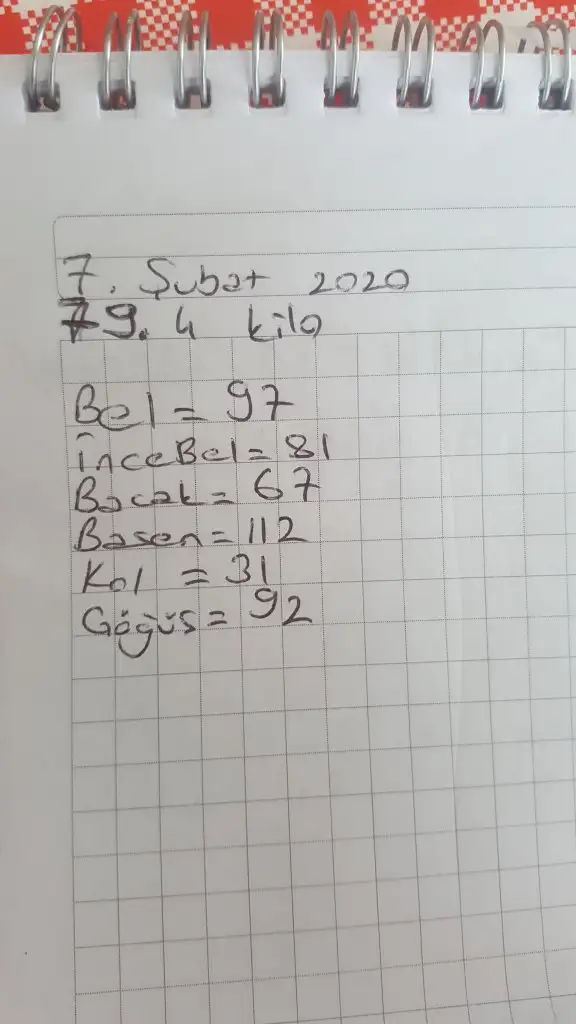 7. Şubat 2020
79.4 kilo
Bel = 97
İnceBel = 81
Bacak = 67
Basen = 112
Kol = 31
Göğüs = 92